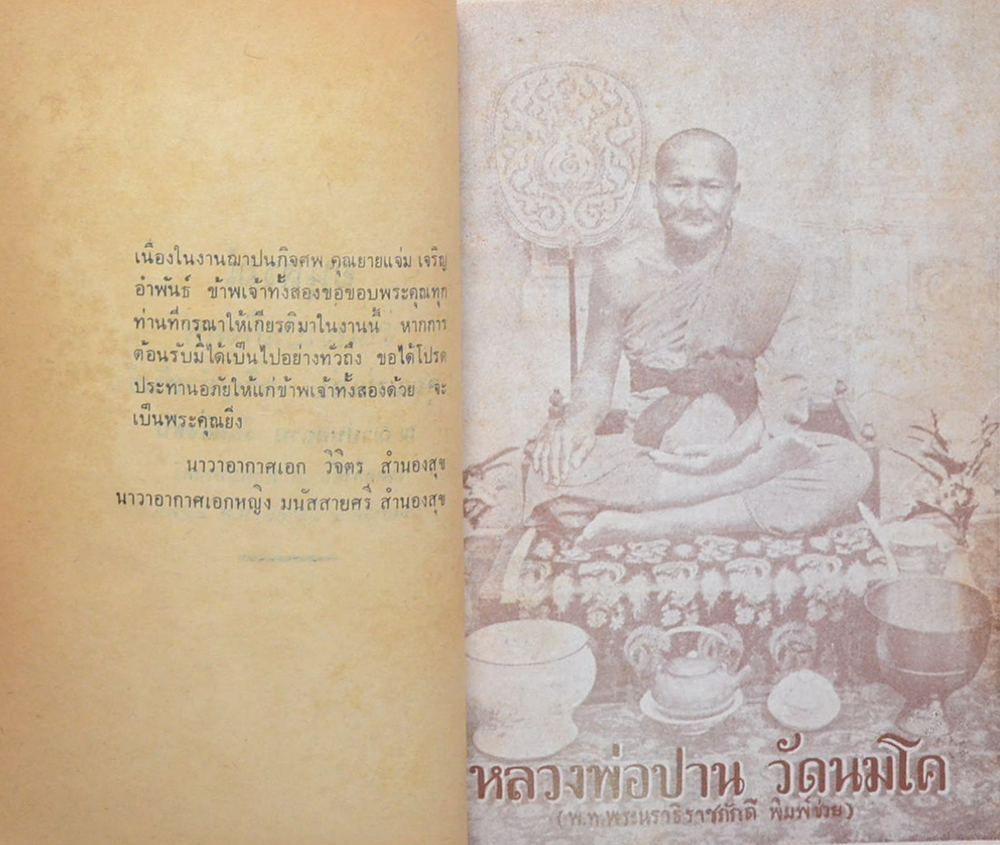 เนื่องในงานฌาปนกิจศพ คุณยายแจ่ม เจริญ
อำพันธ์ ข้าพเจ้าทั้งสองขอขอบพระคุณทุก
ท่านที่กรุณาให้เกียรติมาในงานนี้ หากการ
ต้อนรับมิได้เป็นไปอย่างทั่วถึง ขอได้โปรด
ประทานอภัยให้แก่ข้าพเจ้าทั้งสองด้วย จะ
เป็นพระคุณยิ่ง
นาวาอากาศเอก วิจิตร สำนองสุข
นาวาอากาศเอกหญิง มนัสสายศรี สำนองสุข
หลวงพ่อปาน วัดนมโค
(พ.ท.พระนราธิราชภักดี พิมพ์ช่วย)